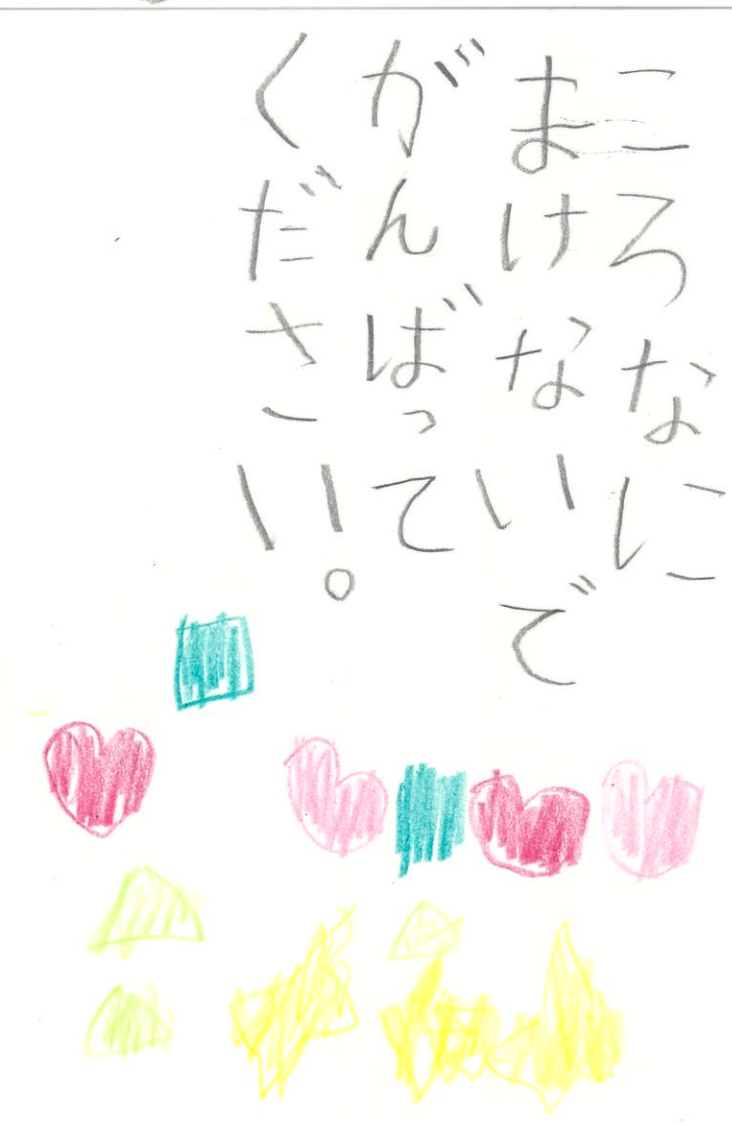 ころなに
まけないで
がんばって
ください!。